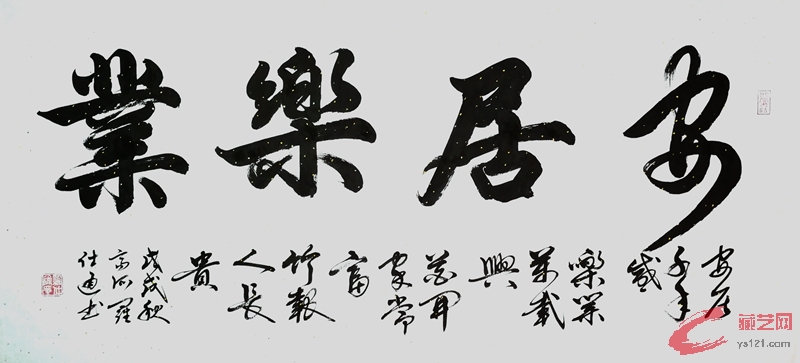 安居樂業
安居
千年
盛
樂業
萬載
興
花開
家常
富
竹報
人長
貴
戊戌秋
高羅
仕通书
藏艺网
ys121.com